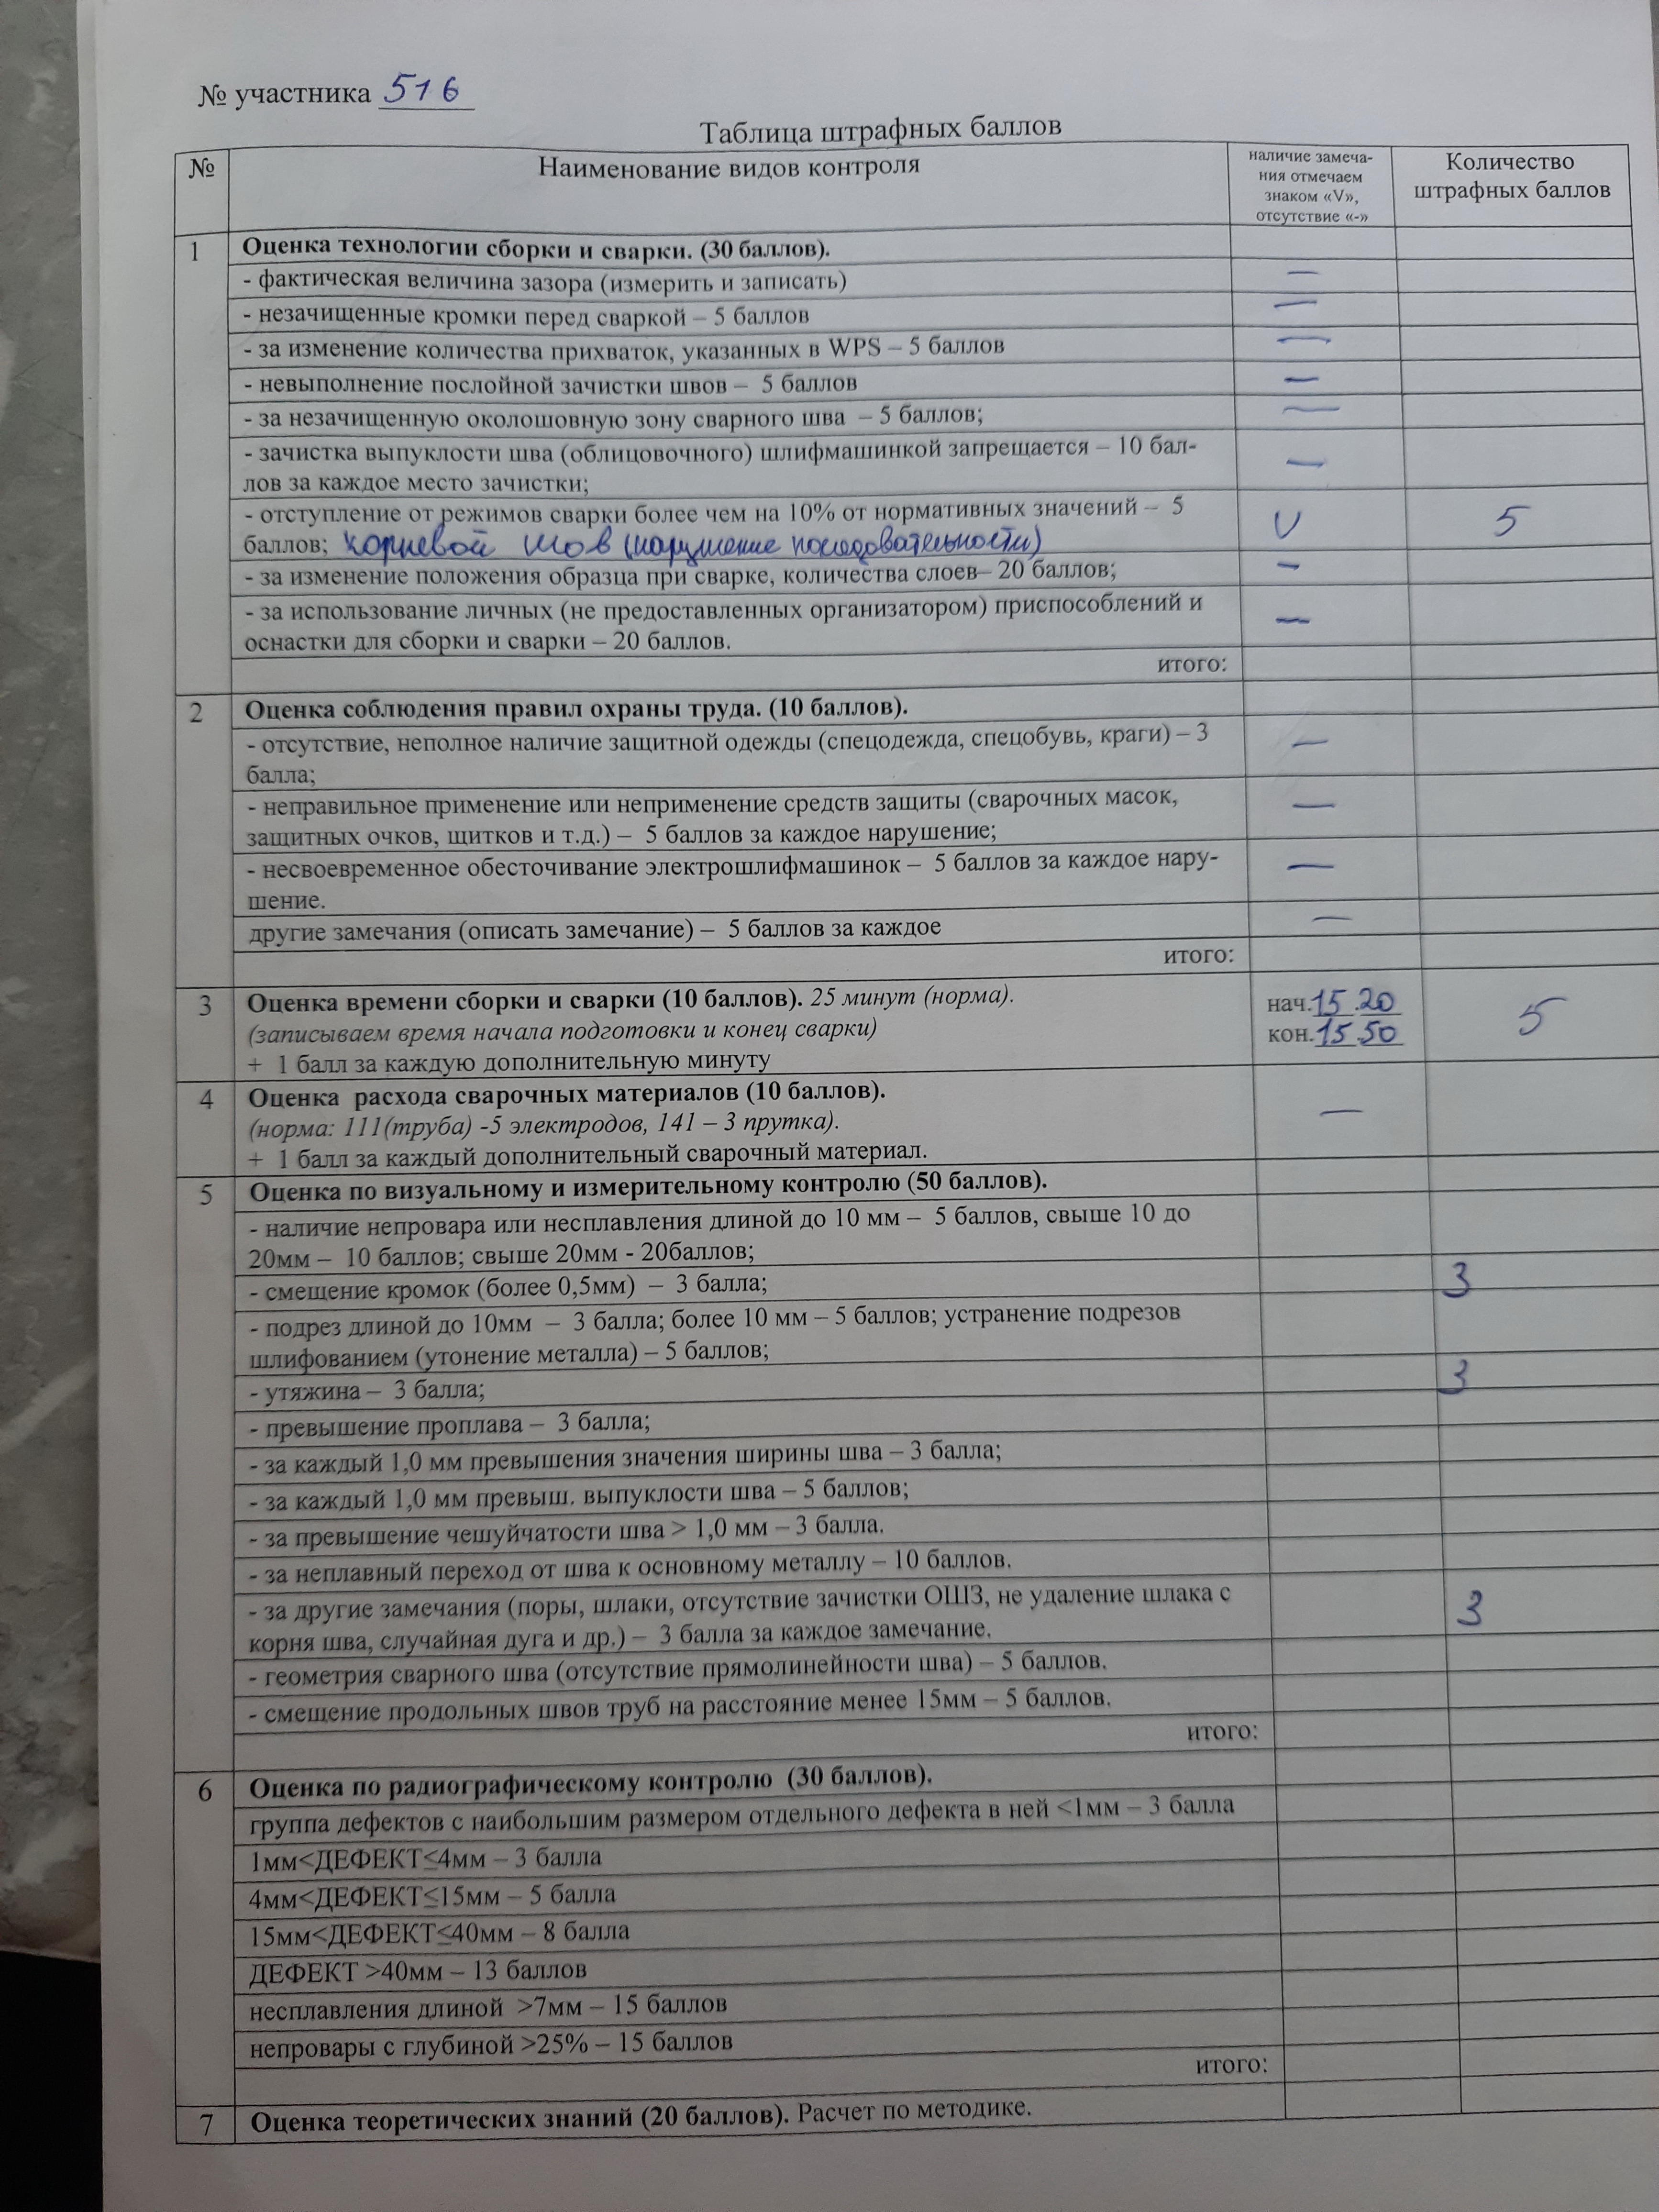 № участника 516
Таблица штрафных баллов
№
Наименование видов контроля
наличие замеча-
ния отмечаем
знаком «V»,
отсутствие «-»
Количество
штрафных баллов
1
Оценка технологии сборки и сварки. (30 баллов).
- фактическая величина зазора (измерить и записать) —
- незачищенные кромки перед сваркой – 5 баллов —
- за изменение количества прихваток, указанных в WPS – 5 баллов —
- невыполнение послойной зачистки швов – 5 баллов —
- за незачищенную околошовную зону сварного шва – 5 баллов; —
- зачистка выпуклости шва (облицовочного) шлифмашинкой запрещается – 10 бал-
лов за каждое место зачистки; —
- отступление от режимов сварки более чем на 10% от нормативных значений – 5
баллов; корневой шов (нарушение последовательности) V 5
- за изменение положения образца при сварке, количества слоев– 20 баллов; —
- за использование личных (не предоставленных организатором) приспособлений и
оснастки для сборки и сварки – 20 баллов. —
итого:
2
Оценка соблюдения правил охраны труда. (10 баллов).
- отсутствие, неполное наличие защитной одежды (спецодежда, спецобувь, краги) – 3
балла; —
- неправильное применение или неприменение средств защиты (сварочных масок,
защитных очков, щитков и т.д.) – 5 баллов за каждое нарушение; —
- несвоевременное обесточивание электрошлифмашинок – 5 баллов за каждое нару-
шение. —
другие замечания (описать замечание) – 5 баллов за каждое —
итого:
3
Оценка времени сборки и сварки (10 баллов). 25 минут (норма).
(записываем время начала подготовки и конец сварки)
+ 1 балл за каждую дополнительную минуту
нач.15.20
кон.15.50
5
4
Оценка расхода сварочных материалов (10 баллов).
(норма: 111(труба) -5 электродов, 141 – 3 прутка).
+ 1 балл за каждый дополнительный сварочный материал.
—
5
Оценка по визуальному и измерительному контролю (50 баллов).
- наличие непровара или несплавления длиной до 10 мм – 5 баллов, свыше 10 до
20мм – 10 баллов; свыше 20мм - 20баллов;
- смещение кромок (более 0,5мм) – 3 балла; 3
- подрез длиной до 10мм – 3 балла; более 10 мм – 5 баллов; устранение подрезов
шлифованием (утонение металла) – 5 баллов;
- утяжина – 3 балла; 3
- превышение проплава – 3 балла;
- за каждый 1,0 мм превышения значения ширины шва – 3 балла;
- за каждый 1,0 мм превыш. выпуклости шва – 5 баллов;
- за превышение чешуйчатости шва > 1,0 мм – 3 балла.
- за неплавный переход от шва к основному металлу – 10 баллов.
- за другие замечания (поры, шлаки, отсутствие зачистки ОШЗ, не удаление шлака с
корня шва, случайная дуга и др.) – 3 балла за каждое замечание. 3
- геометрия сварного шва (отсутствие прямолинейности шва) – 5 баллов.
- смещение продольных швов труб на расстояние менее 15мм – 5 баллов.
итого:
6
Оценка по радиографическому контролю (30 баллов).
группа дефектов с наибольшим размером отдельного дефекта в ней <1мм – 3 балла
1мм<ДЕФЕКТ≤4мм – 3 балла
4мм<ДЕФЕКТ≤15мм – 5 балла
15мм<ДЕФЕКТ≤40мм – 8 балла
ДЕФЕКТ >40мм – 13 баллов
несплавления длиной >7мм – 15 баллов
непровары с глубиной >25% – 15 баллов
итого:
7
Оценка теоретических знаний (20 баллов). Расчет по методике.